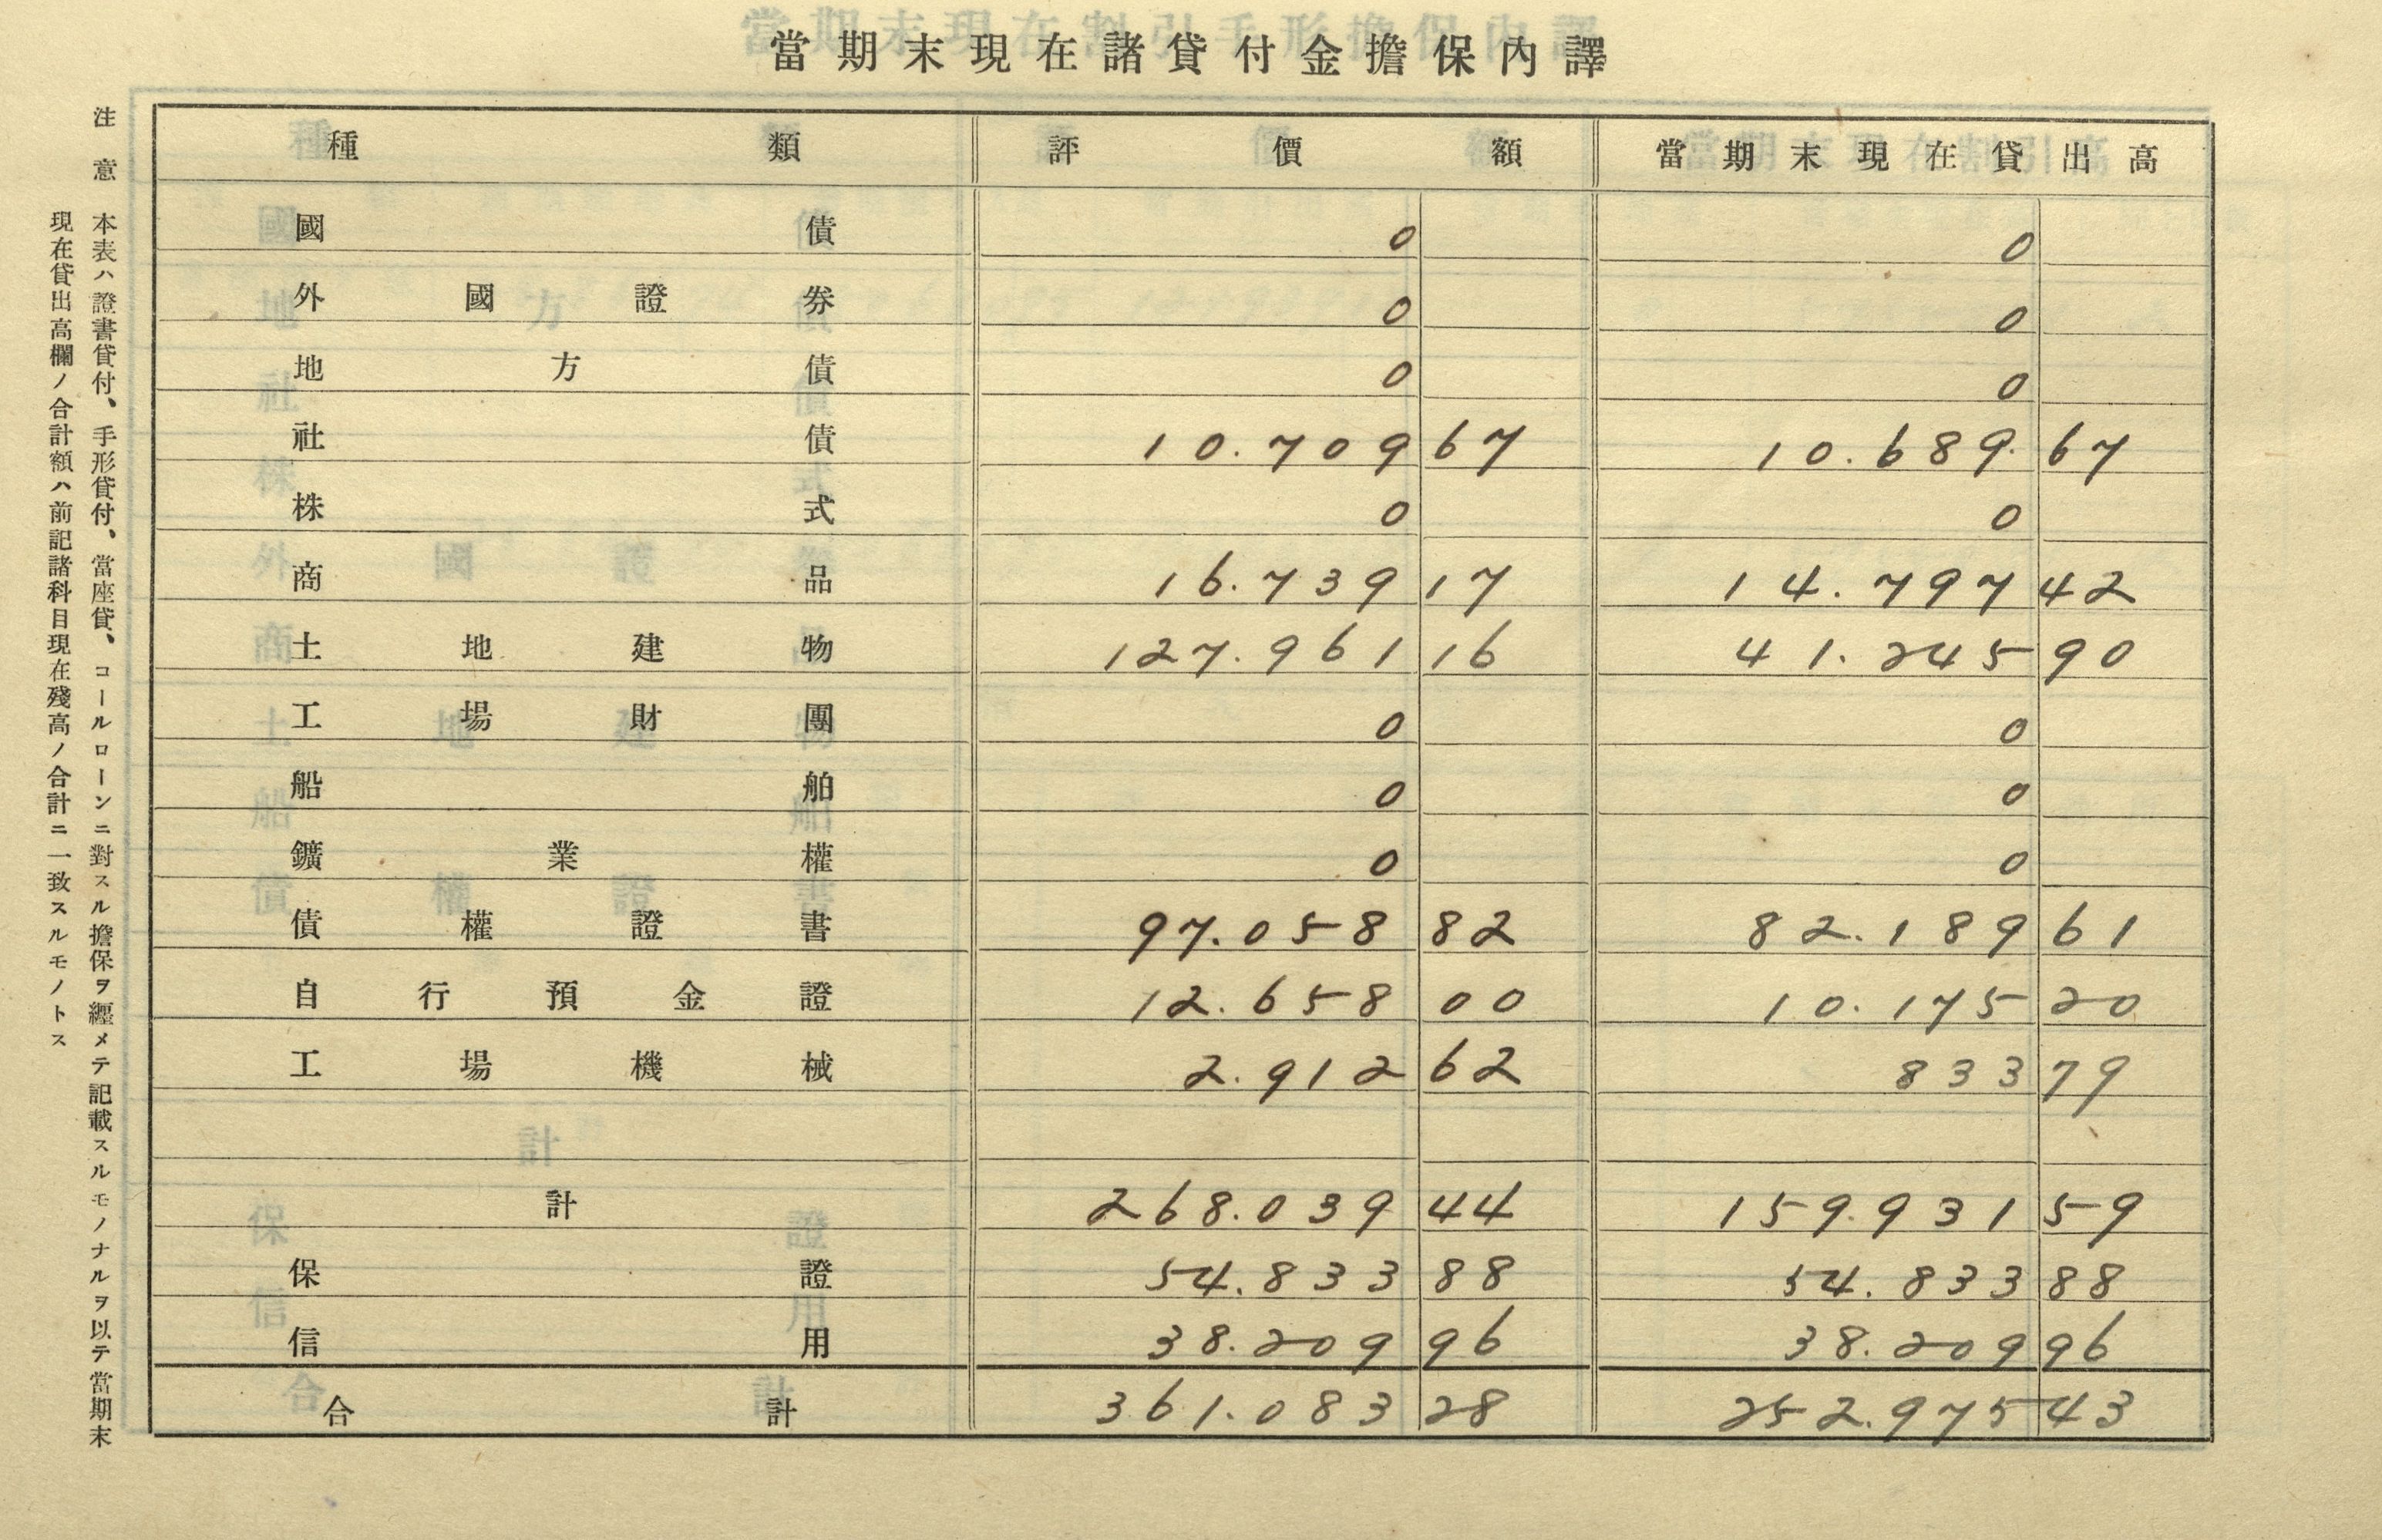 當期末現在諸貸付金擔保內譯
種類 評價額 當期末現在貸出高
國債 0 0
外國證券 0 0
地方債 0 0
社債 10.709 67 10.689. 67
株式 0 0
商品 16.739 17 14.797 42
土地建物 127.961 16 41.245 90
工場財團 0 0
船舶 0 0
鑛業權 0 0
債權證書 97.058 82 82.189 61
自行預金證 12.658 00 10.175 20
工場機械 2.912 62 833 79
計 268.039 44 159.931 59
保證 54.833 88 54.833 88
信用 38.209 96 38.209 96
合計 361.083 28 252.975 43
注意 本表ハ證書貸付、手形貸付、當座貸、コールローンニ對スル擔保ヲ纒メテ記載スルモノナルヲ以テ當期末
現在貸出高欄ノ合計額ハ前記諸科目現在殘高ノ合計ニ一致スルモノトス